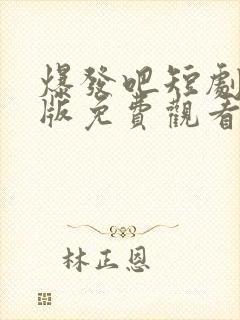 爆發吧短劇
版免費觀看
林正恩